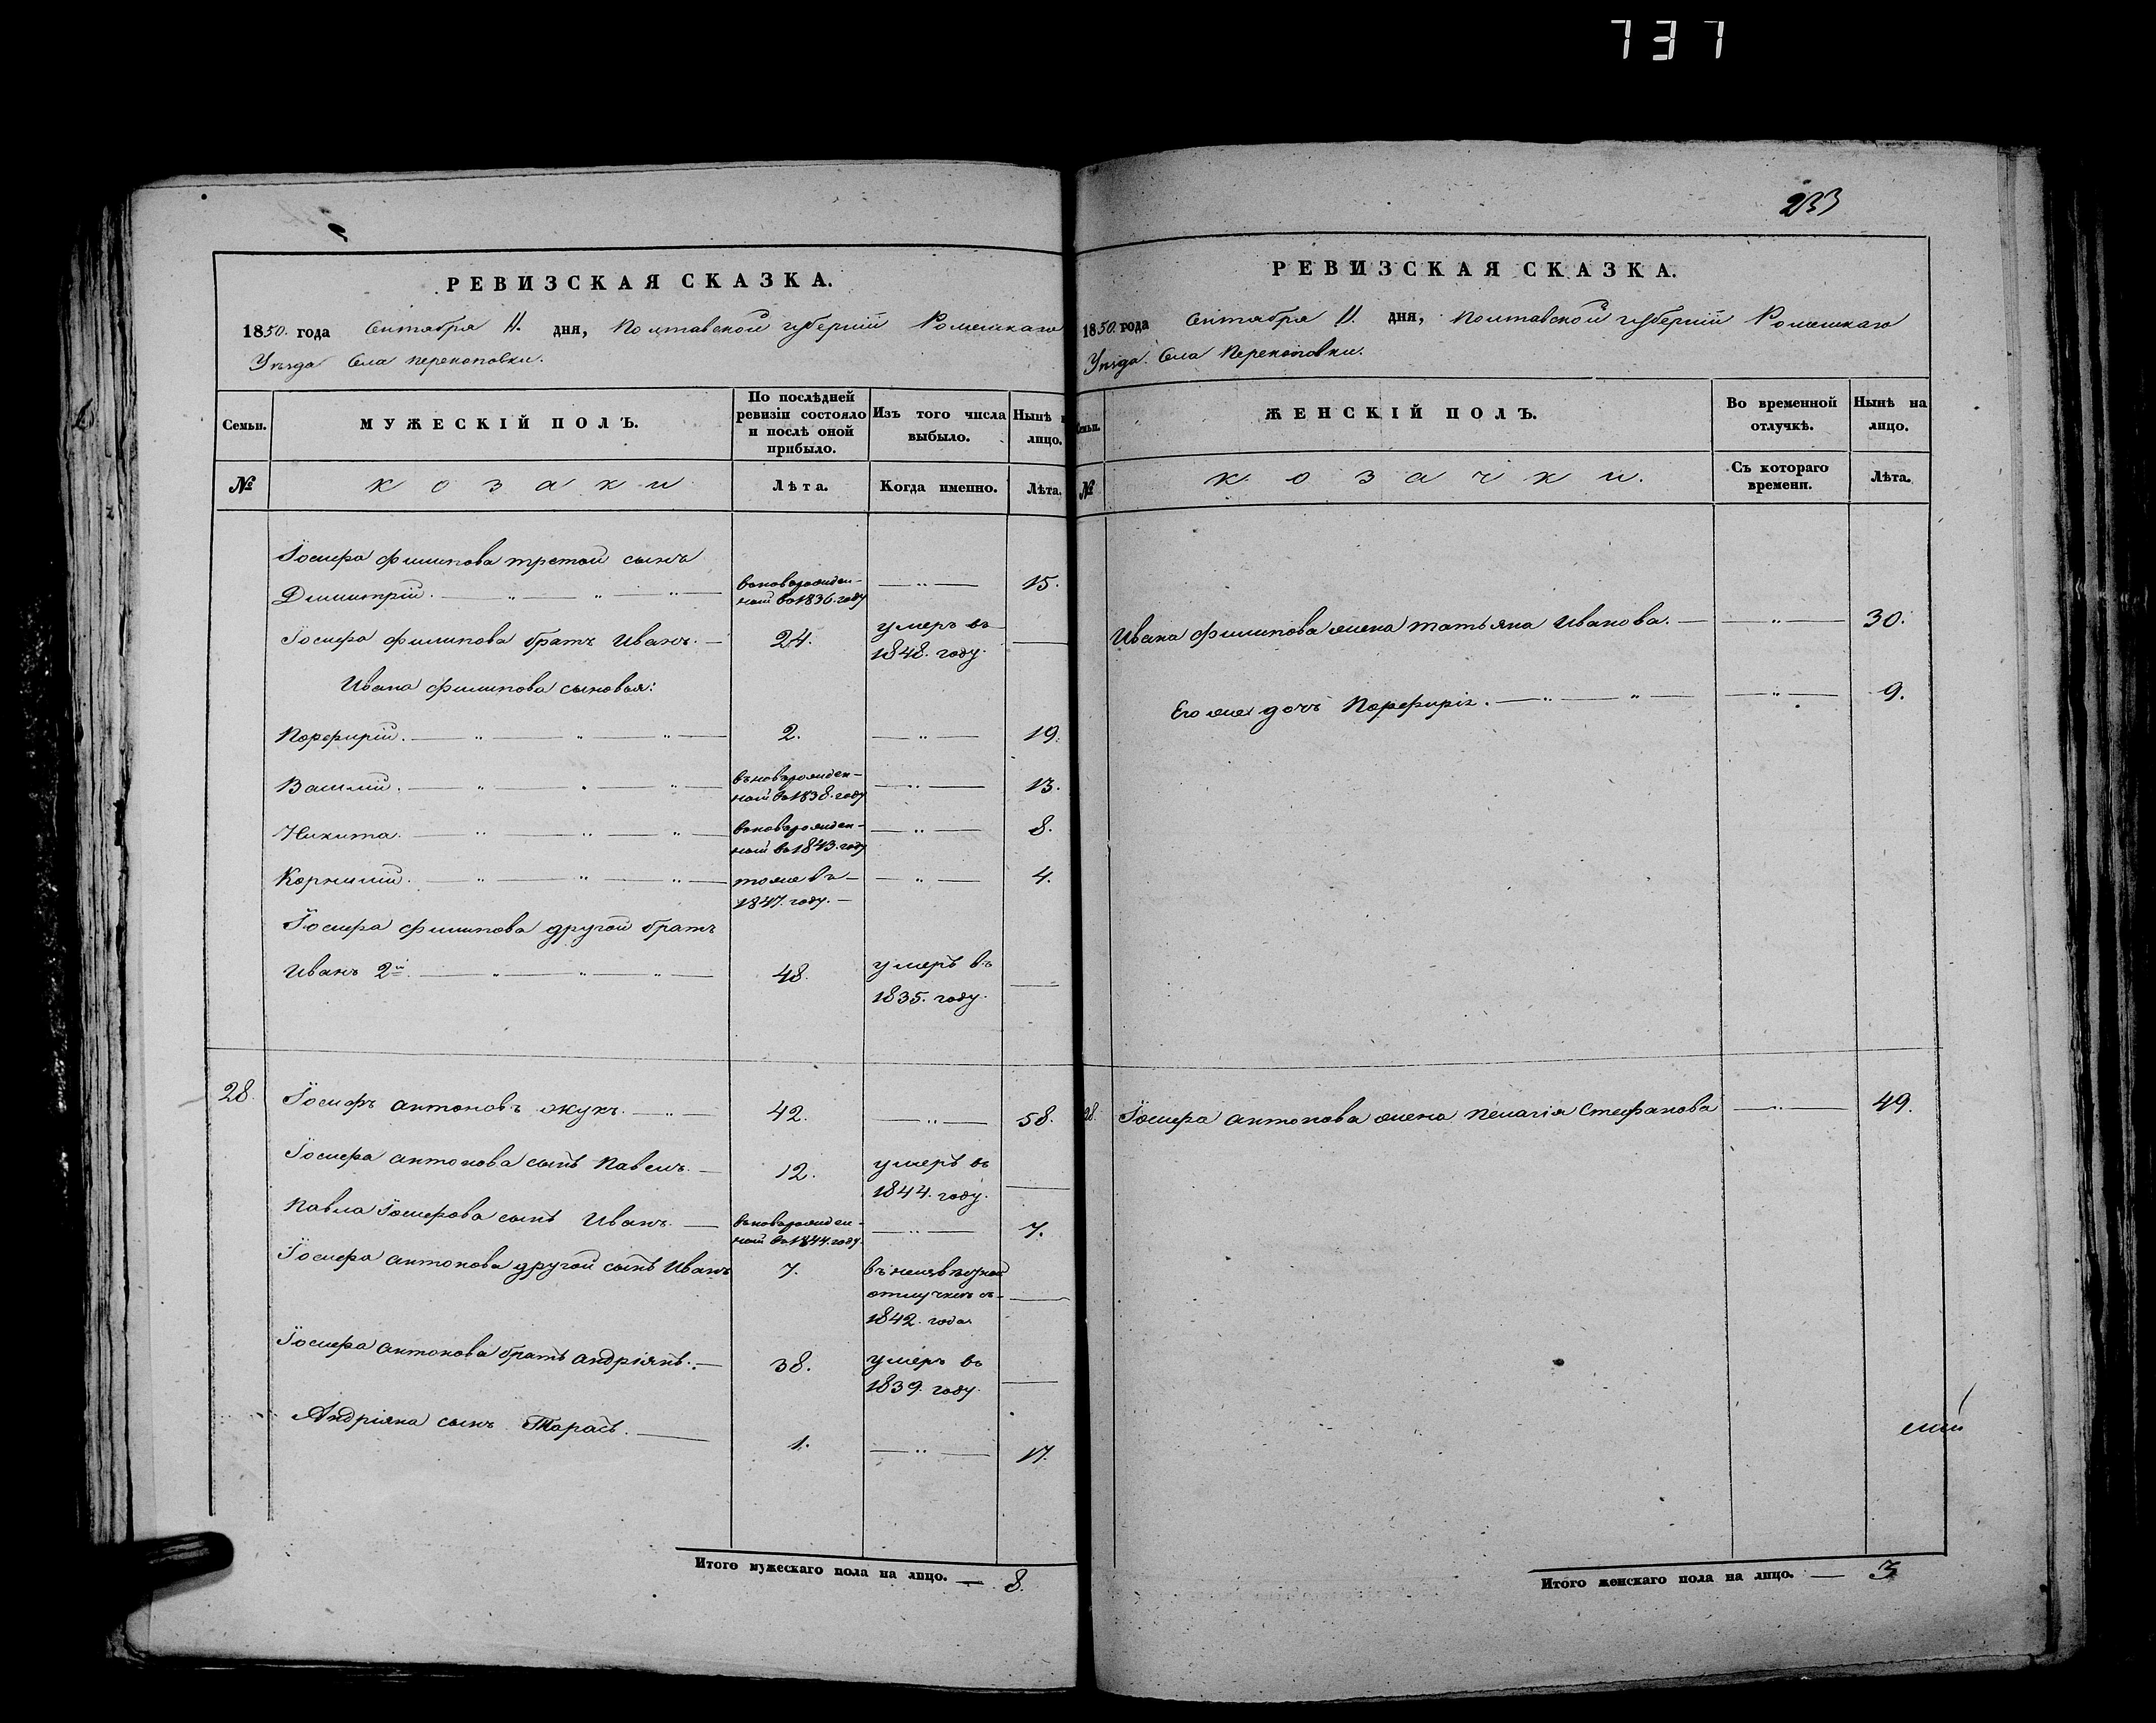 737
233
РЕВИЗСКАЯ СКАЗКА.
1850. года Сентября 11. дня, Полтавской губерніи Роменскаго
Уѣзда Села Перекоповки.
Семьи.
МУЖЕСКІЙ ПОЛЪ.
По послѣдней ревизіи состояло и послѣ оной прибыло.
Изъ того числа выбыло.
Нынѣ на лицо.
№
козаки
Лѣта.
Когда именно.
Лѣта.
Іосифа Филипова третой сынъ
Димитрій. вновьрожден-
ной въ 1836. году 15.
Іосифа Филипова братъ Иванъ. 24. умеръ въ
1848. году.
Ивана Филипова сыновья:
Порфирій. 2. 19.
Василій. вновьрожден-
ной въ 1838. году 13.
Никита. вновьрожден-
ной въ 1843. году 8.
Корнилій. тоже въ 4.
1847. году.
Іосифа Филипова другой братъ
Иванъ 2й. 48. умеръ въ
1835. году.
28. Іосифъ Антоновъ Жукъ. 42. 58.
Іосифа Антонова сынъ Павелъ. 12. умеръ въ
1844. году.
Павла Іосифова сынъ Иванъ. вновьрожден-
ной въ 1844. году. 7.
Іосифа Антонова другой сынъ Иванъ 7. въ неизвѣстной
отлучкѣ съ
1842. года.
Іосифа Антонова братъ Андріянъ. 38. умеръ въ
1839. году.
Андріяна сынъ Тарасъ. 1. 17.
Итого мужескаго пола на лицо. 8.
РЕВИЗСКАЯ СКАЗКА.
1850. года Сентября 11. дня, Полтавской губерніи Роменскаго
Уѣзда. Села Перекоповки.
Семьи.
ЖЕНСКІЙ ПОЛЪ.
Во временной отлучкѣ.
Нынѣ на лицо.
№
козачки.
Съ котораго времени.
Лѣта.
Ивана Филипова жена Татьяна Иванова. 30.
Его же дочь Порфирія. 9.
28. Іосифа Антонова жена Пелагія Стефанова 49.
Итого женскаго пола на лицо. 3